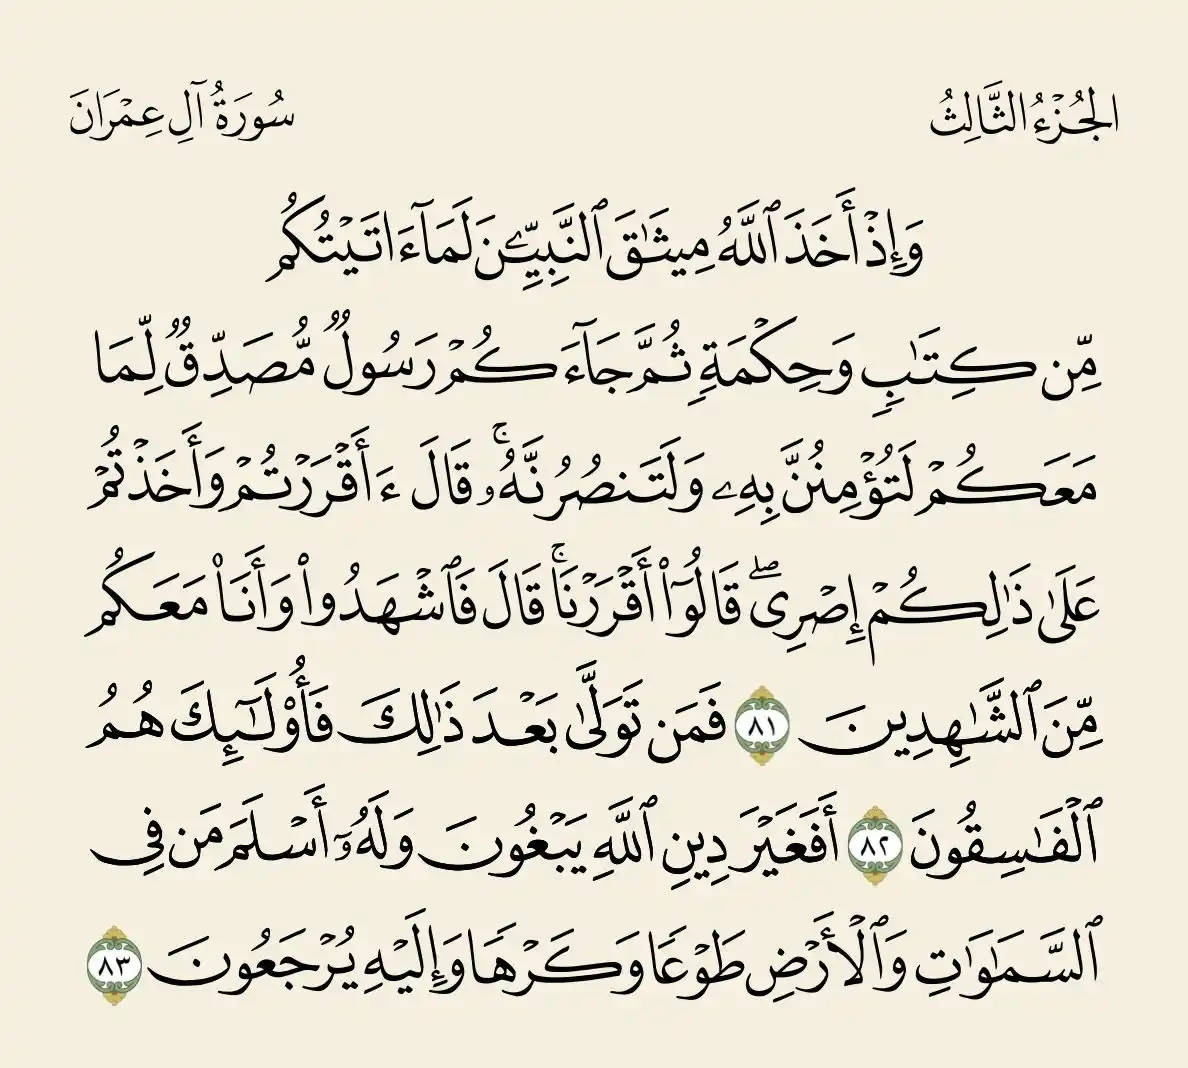 الجُزْءُ الثَّالِثُ
سُورَةُ آلِ عِمْرَانَ
وَإِذْ أَخَذَ ٱللَّهُ مِيثَٰقَ ٱلنَّبِيِّـۧنَ لَمَآ ءَاتَيْتُكُم
مِّن كِتَٰبٍ وَحِكْمَةٍ ثُمَّ جَآءَكُمْ رَسُولٌ مُّصَدِّقٌ لِّمَا
مَعَكُمْ لَتُؤْمِنُنَّ بِهِۦ وَلَتَنصُرُنَّهُۥ ۚ قَالَ ءَأَقْرَرْتُمْ وَأَخَذْتُمْ
عَلَىٰ ذَٰلِكُمْ إِصْرِى ۖ قَالُوٓا۟ أَقْرَرْنَا ۚ قَالَ فَٱشْهَدُوا۟ وَأَنَا۠ مَعَكُم
مِّنَ ٱلشَّٰهِدِينَ ٨١ فَمَن تَوَلَّىٰ بَعْدَ ذَٰلِكَ فَأُو۟لَٰٓئِكَ هُمُ
ٱلْفَٰسِقُونَ ٨٢ أَفَغَيْرَ دِينِ ٱللَّهِ يَبْغُونَ وَلَهُۥٓ أَسْلَمَ مَن فِى
ٱلسَّمَٰوَٰتِ وَٱلْأَرْضِ طَوْعًا وَكَرْهًا وَإِلَيْهِ يُرْجَعُونَ ٨٣